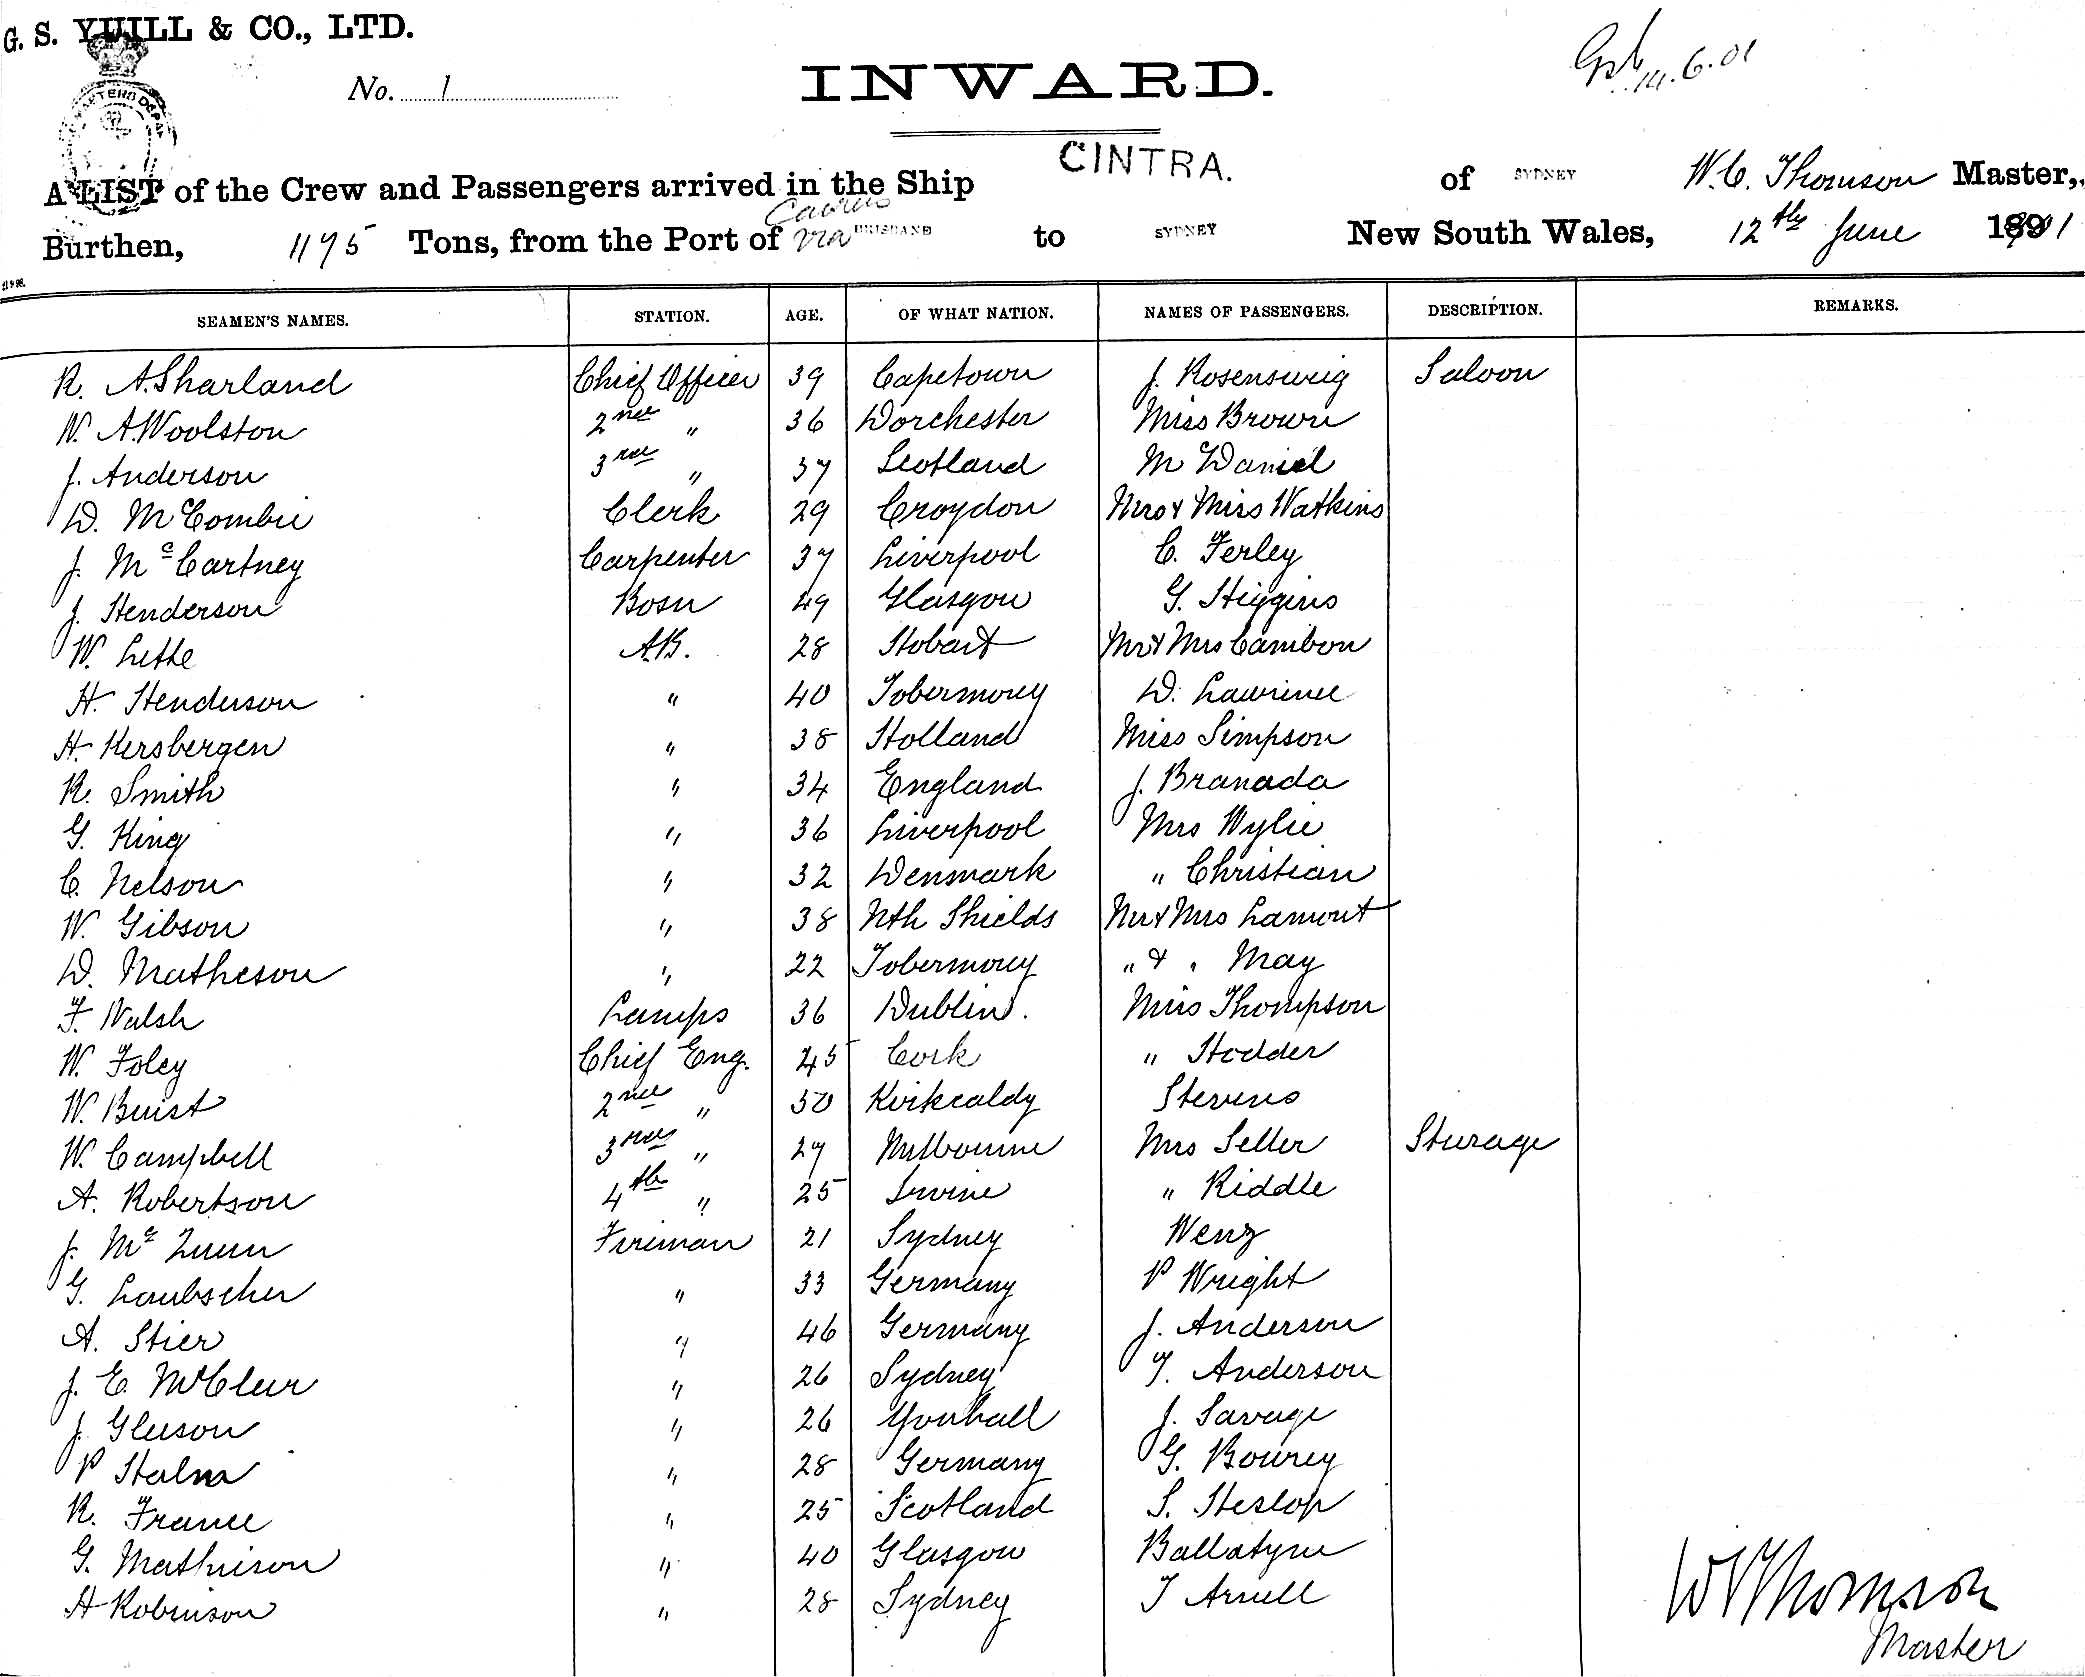 G. S. YUILL & CO., LTD.
No. 1
INWARD.
14.6.01
CINTRA.
A LIST of the Crew and Passengers arrived in the Ship CINTRA. of SYDNEY W.C. Thomson Master,
Cairns
Burthen, 1195 Tons, from the Port of via BRISBANE to SYDNEY New South Wales, 12th June 1901
SEAMEN'S NAMES. STATION. AGE. OF WHAT NATION. NAMES OF PASSENGERS. DESCRIPTION. REMARKS.
R. A. Sharland Chief Officer 39 Capetown J. Rosensweig Saloon
W. A. Woolston 2nd " 36 Dorchester Miss Brown
J. Anderson 3rd " 37 Scotland M Daniel
D. McCombie Clerk 29 Croydon Mrs & Miss Watkins
J. McCartney Carpenter 37 Liverpool C. Ferley
J. Henderson Bosn 49 Glasgow G. Higgins
W. Lette A.B. 28 Hobart Mr & Mrs Cambon
H. Henderson " 40 Tobermorey D. Lawrence
H. Kersbergen " 38 Holland Miss Simpson
R. Smith " 34 England J. Branada
G. King " 36 Liverpool Mrs Wylie
C. Nelson " 32 Denmark " Christian
W. Gibson " 38 Nth Shields Mr & Mrs Lamont
D. Matheson " 22 Tobermorey " & " May
F. Walsh Lamps 36 Dublin. Miss Thompson
W. Foley Chief Eng. 45 Cork " Hodder
W. Buist 2nd " 30 Kirkcaldy Stevens
W. Campbell 3rd " 27 Melbourne Mrs Seller Sturage
A. Robertson 4th " 25 Irvine " Riddle
J. McQueen Fireman 21 Sydney Wenz
G. Laubscher " 33 Germany P Wright
A. Stier " 46 Germany J. Anderson
J. E. McClur " 26 Sydney T. Anderson
J. Gleeson " 26 Youhall J. Savage
P Halm " 28 Germany G. Bourey
R. France " 25 Scotland S. Heslop
G. Mathieson " 40 Glasgow Ballatyne
H Robinson " 28 Sydney T Arnell
W Thomson
Master